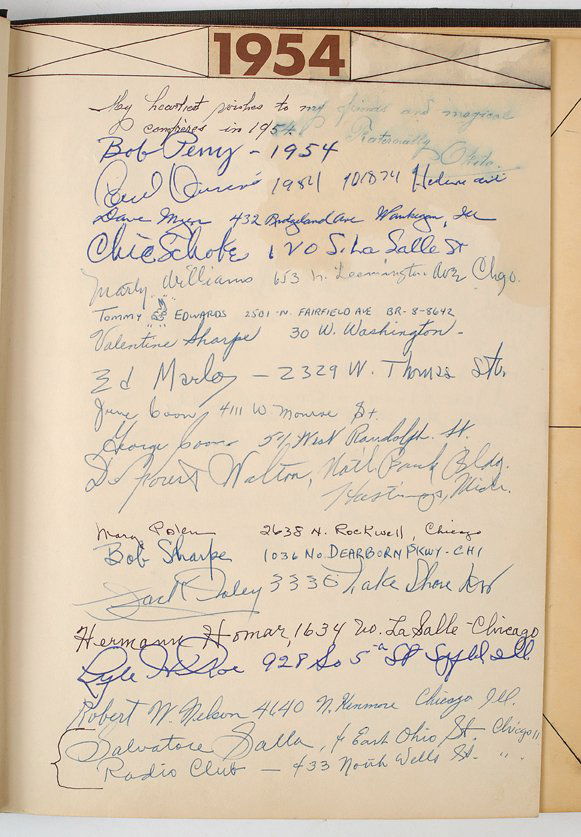 1954
My heartiest wishes to my friends and magical
confrères in 1954. Fraternally
Okito.
Bob Perry - 1954
1954
Dave Myer 432 Ridgeland Ave Waukegan, Ill
Chic Schoke 120 S. La Salle St
Marty Williams 653 N. Leamington Ave Chgo.
Tommy EDWARDS 2501 -N. FAIRFIELD AVE BR-8-8642
Valentine Sharpe 30 W. Washington -
Ed Marlo - 2329 W. Thomas St.
June Coon 4111 W Monroe St.
George Coon West Randolph. St.
DeForest Walton, Nat'l Bank Bldg.
Hastings, Mich.
2638 N. Rockwell, Chicago
Bob Sharpe 1036 No. DEARBORN PKWY - CHI
Jack 3336 Lake Shore Dr
Hermann Homar, 1634 No. La Salle - Chicago
Lyle 928 So 5th St Spfld Ill.
Robert W. Nelson 4640 N. Kenmore Chicago Ill.
Salvatore Salla, 4 East Ohio St. Chicago 11
Radio Club - 433 North Wells St. " "